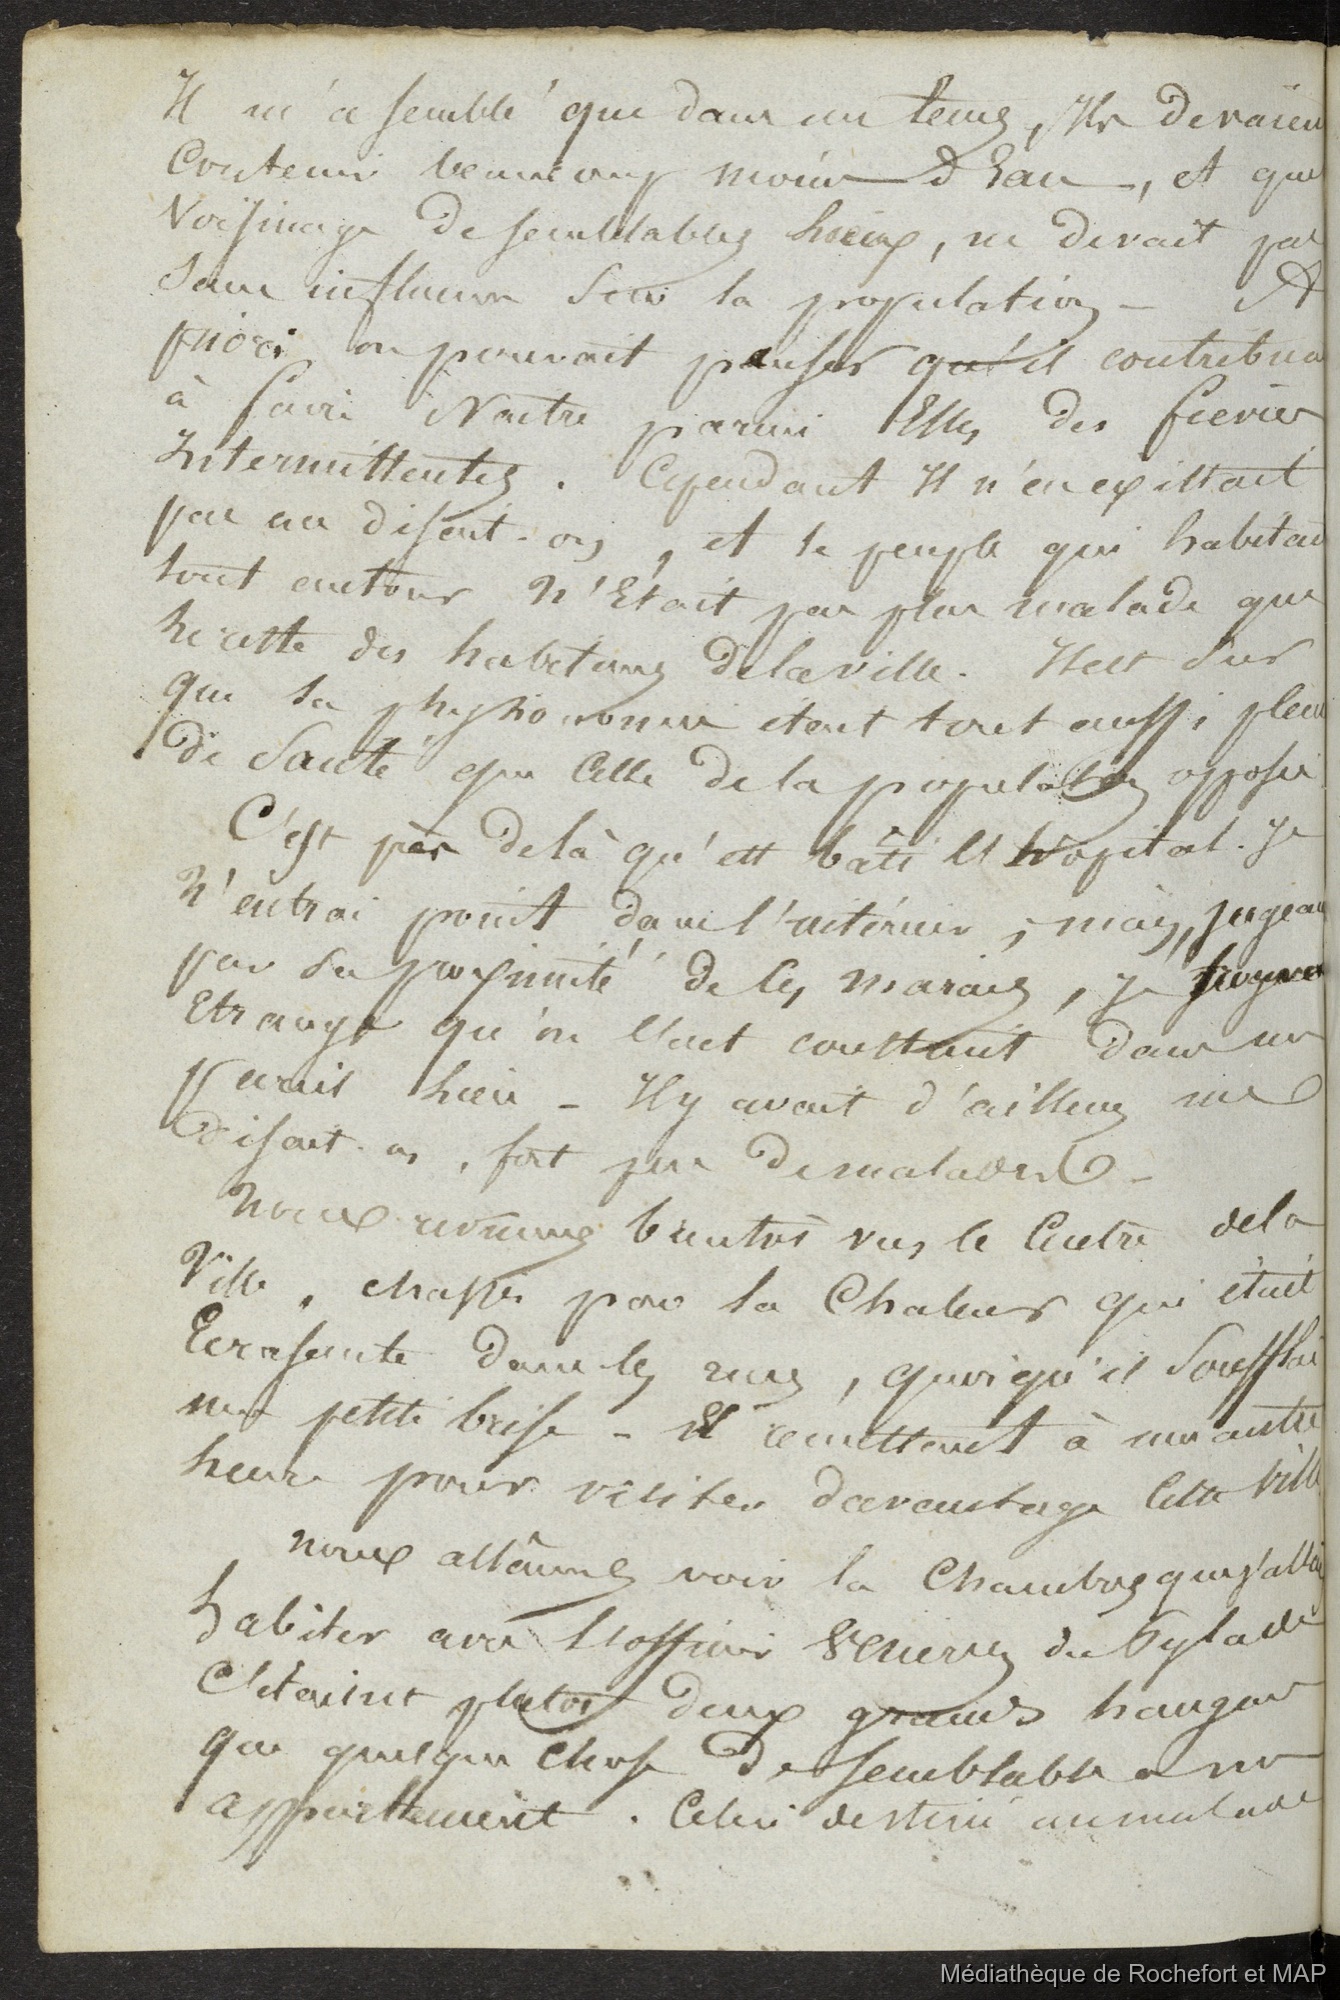 Il m'a semblé que dans un tems, Ils devaien
Contenir beaucoup moins d'Eau, et que
Voisinage de semblables lieux, ne devait pas
Sans influence Sur la population - A
priori on pouvait penser qu'il contribua
à faire Naitre parmi Elles des fievres
Intermittentes. Cependant Il n'en existtait
pas au disait-on, et le peuple qui habitait
tout autour N'Etait pas plus malade que
le reste des habitans de la ville. Il est Sur
que sa physionomie etait tout aussi pleine
de Santé que Celle de la population opposée
C'est par delà qu'est bâti l'hopital. Je
N'entrai point dans l'intérieur ; mais, jugeant
par sa proximité de ces marais, je
Etrange qu'on l'eut constrüit dans un
pareil lieu - Il y avait d'ailleurs me
disait-on, fort peu de malades -
Nous revinmes bientôt vers le Centre de la
Ville, chassés par la Chaleur qui était
Ecrasante dans les rues, quoiqu'il Soufflai
une petite brise - Et remettant à une autre
heure pour visiter davantage Cette Ville
nous allâmes voir la Chambre que j'allai
habiter avec l'officier du Pylade
C'étaient plutot deux grands hangars
que quelque chose de semblable a un
appartement. Celui destiné au malade
Médiathèque de Rochefort et MAP